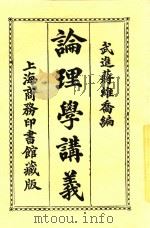 武進蔣維喬編
論理學講義
上海商務印書館藏版
www.touou.com